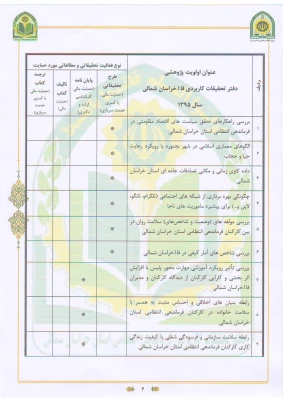 نوع فعالیت تحقیقاتی و مطالعاتی مورد حمایت
عنوان اولویت پژوهشی
دفتر تحقیقات کاربردی فا.ا.خراسان شمالی
سال ۱۳۹۵
ردیف
طرح
تحقیقاتی
(حمایت مالی
یا کسری
خدمت سربازی)
پایان نامه
(حمایت مالی
کارشناسی
ارشد و
دکتری)
تألیف
کتاب
(حمایت
مالی)
ترجمه
کتاب
(حمایت مالی
یا کسری
سربازی)
۱
بررسی راهکارهای تحقق سیاست های اقتصاد مقاومتی در
فرماندهی انتظامی استان خراسان شمالی
۲
الگوهای معماری اسلامی در شهر بجنورد با رویکرد رعایت
حیا و حجاب
۳
داده کاوی زمانی و مکانی تصادفات جاده ای استان خراسان
شمالی
۴
چگونگی بهره برداری از شبکه های اجتماعی (تلگرام، تانگو،
لاین و...) برای پیشبرد ماموریت های ناجا
۵
بررسی مولفه های (وضعیت و شاخص‌های) سلامت روان در
بین کارکنان فرماندهی انتظامی استان خراسان شمالی
۶
بررسی شاخص های آمار کیفی در فا.ا.خراسان شمالی
۷
بررسی تأثیر رویکرد آموزشی مهارت محور پلیس با افزایش
اثر بخشی و کارایی کارکنان از دیدگاه کارکنان و مدیران
فا.ا.خراسان شمالی
۸
رابطه بنیان های اخلاقی و احساس مثبت به همسر با
سلامت خانواده در کارکنان فرماندهی انتظامی استان
خراسان شمالی
۹
رابطه سلامت سازمانی و فرسودگی شغلی با کیفیت زندگی
کاری کارکنان فرماندهی انتظامی استان خراسان شمالی
۲